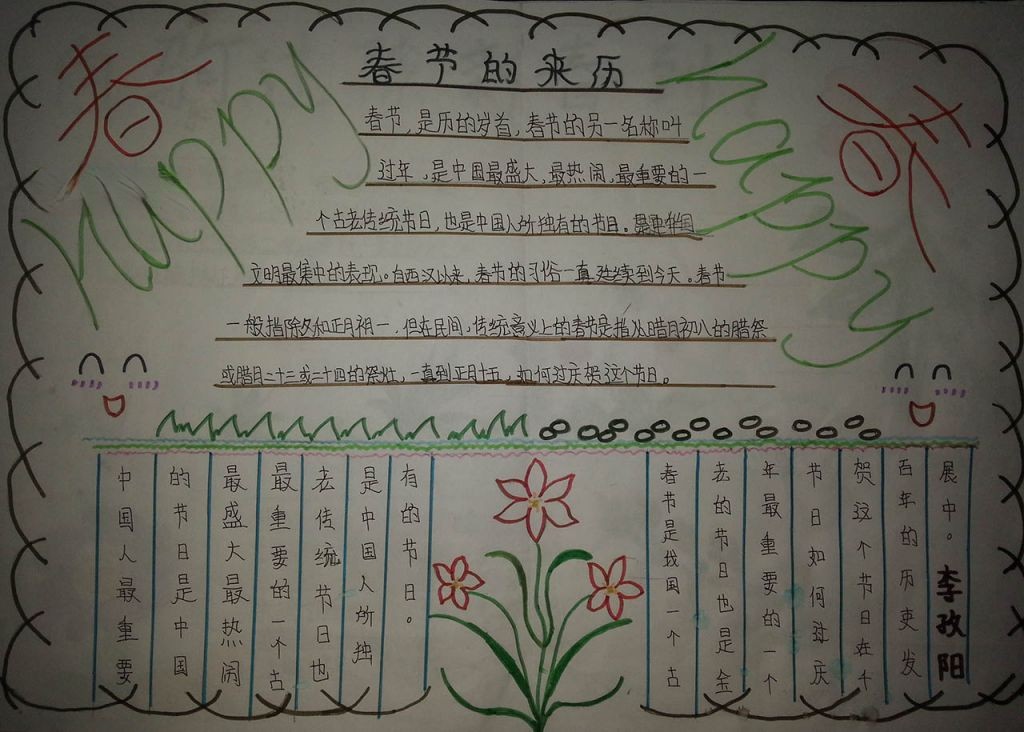 春节的来历
春
happy
happy
春
春节,是历的岁首,春节的另一名称叫
过年,是中国最盛大,最热闹,最重要的一
个古老传统节日,也是中国人所独有的节日。是中华国
文明最集中的表现。自西汉以来,春节的习俗一直延续到今天。春节
一般指除夕和正月初一,但在民间,传统意义上的春节是指从腊月初八的腊祭
或腊月二十三或二十四的祭灶,一直到正月十五,如何过庆贺这个节日。
中国人最重要
的节日是中国
最盛大最热闹
最重要的一个古
老传统节日也
是中国人所独
有的节日。
春节是我国一个古
老的节日也是全
年最重要的一个
节日如何过庆
贺这个节日在个
百年的历史发
展中。
李孜阳